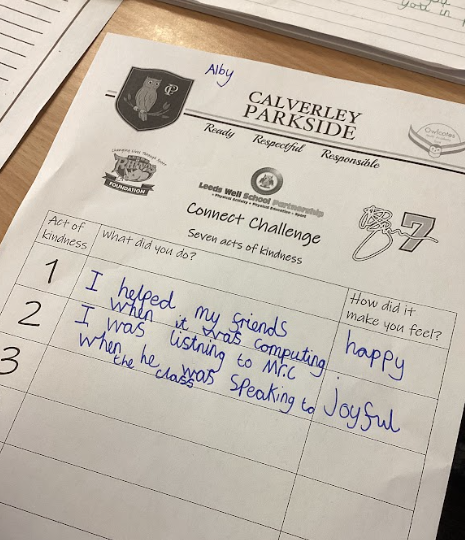 you in
Alby
CALVERLEY
PARKSIDE
Ready Respectful Responsible
Owlcotes
Changing Lives Through Sport
Rhinos
FOUNDATION
Leeds Well School Partnership
• Physical Activity • Physical Education • Sport
Connect Challenge
Seven acts of kindness
7
Act of kindness
What did you do?
How did it make you feel?
1
I helped my friends
when it was computing
happy
2
I was listning to Mr.C
when he was speaking to
the class
Joyful
3